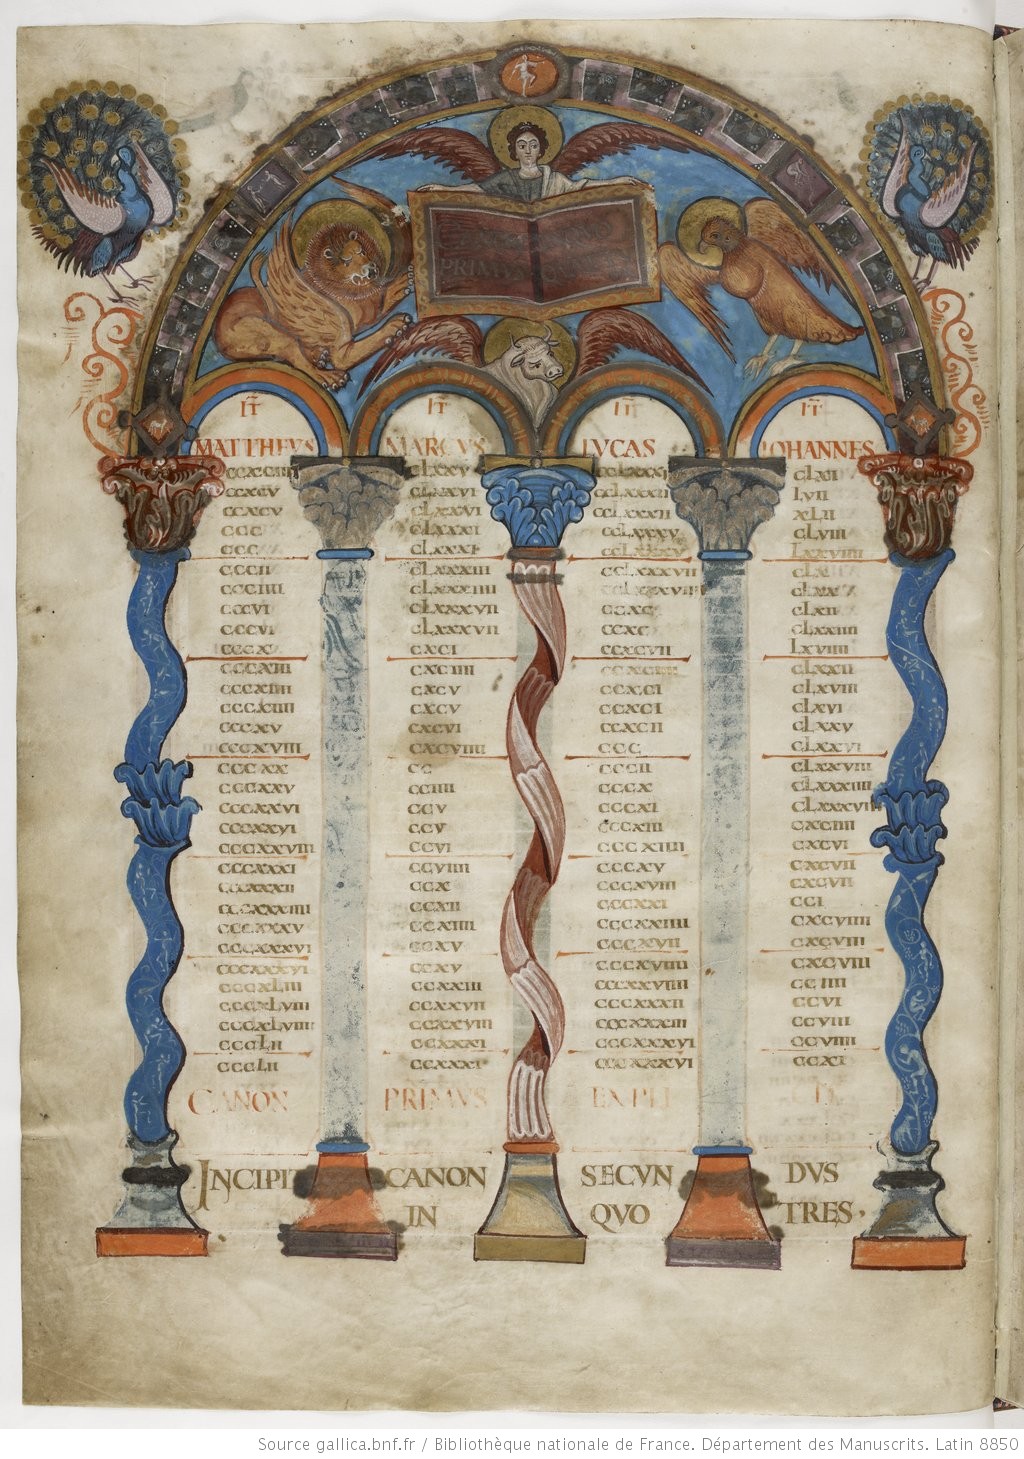 IT IT IT IT
MATTHEVS MARCVS LVCAS IOHANNES
CLXXV CLXI
CCXCV CLXXVI CCLXXXII LVII
CCXCV CLXXVI CCLXXXII XLII
CCC CLXXXI CCLXXXV CLVIII
CCC CLXXXI CCLXXXV LXXVIIII
CCCII CLXXXIII CCLXXXVII
CCCIIII CLXXXIIII
CCCVI CLXXXVII CCXC CLXII
CCCVI CLXXXVII CCXC CLXIIII
CCCX CXCI CCXCVII LXVIIII
CCCXIII CXCIIII CLXXII
CCCXIIII CXCV CCXCI CLXVIII
CCCXIIII CXCV CCXCI CLXVI
CCCXV CXCVI CCXCII CLXXV
CCCXVIII CXCVIIII CCC CLXXVI
CCCXX CC CCCII CLXXVIII
CCCXXV CCIIII CCCX CLXXXIIII
CCCXXVI CCV CCCXI CLXXXVIII
CCCXXVI CCV CCCXIII CXCIIII
CCCXXVIII CCVI CCCXIIII CXCVI
CCCXXXI CCVIIII CCCXV CXCVII
CCCXXXII CCX CCCXVIII CXCVII
CCCXXXIIII CCXII CCCXXI CCI
CCCXXXV CCXIIII CCCXXIIII CXCVIIII
CCCXXXVI CCXV CCCXVII CXCVIII
CCCXXXVI CCXV CCCXVIIII CXCVIII
CCCXLIII CCXXIII CCCXXVIIII CCIIII
CCCXLVIII CCXXVII CCCXXXII CCVI
CCCXLVIIII CCXXVIII CCCXXXIII CCVIII
CCCLII CCXXXI CCCXXXVI CCVIIII
CCCLII CCXXXI CCCXXXVI CCXI
CANON PRIMVS EXPLI CIT
INCIPIT CANON SECVN DVS
IN QVO TRES·
Source gallica.bnf.fr / Bibliothèque nationale de France. Département des Manuscrits. Latin 8850